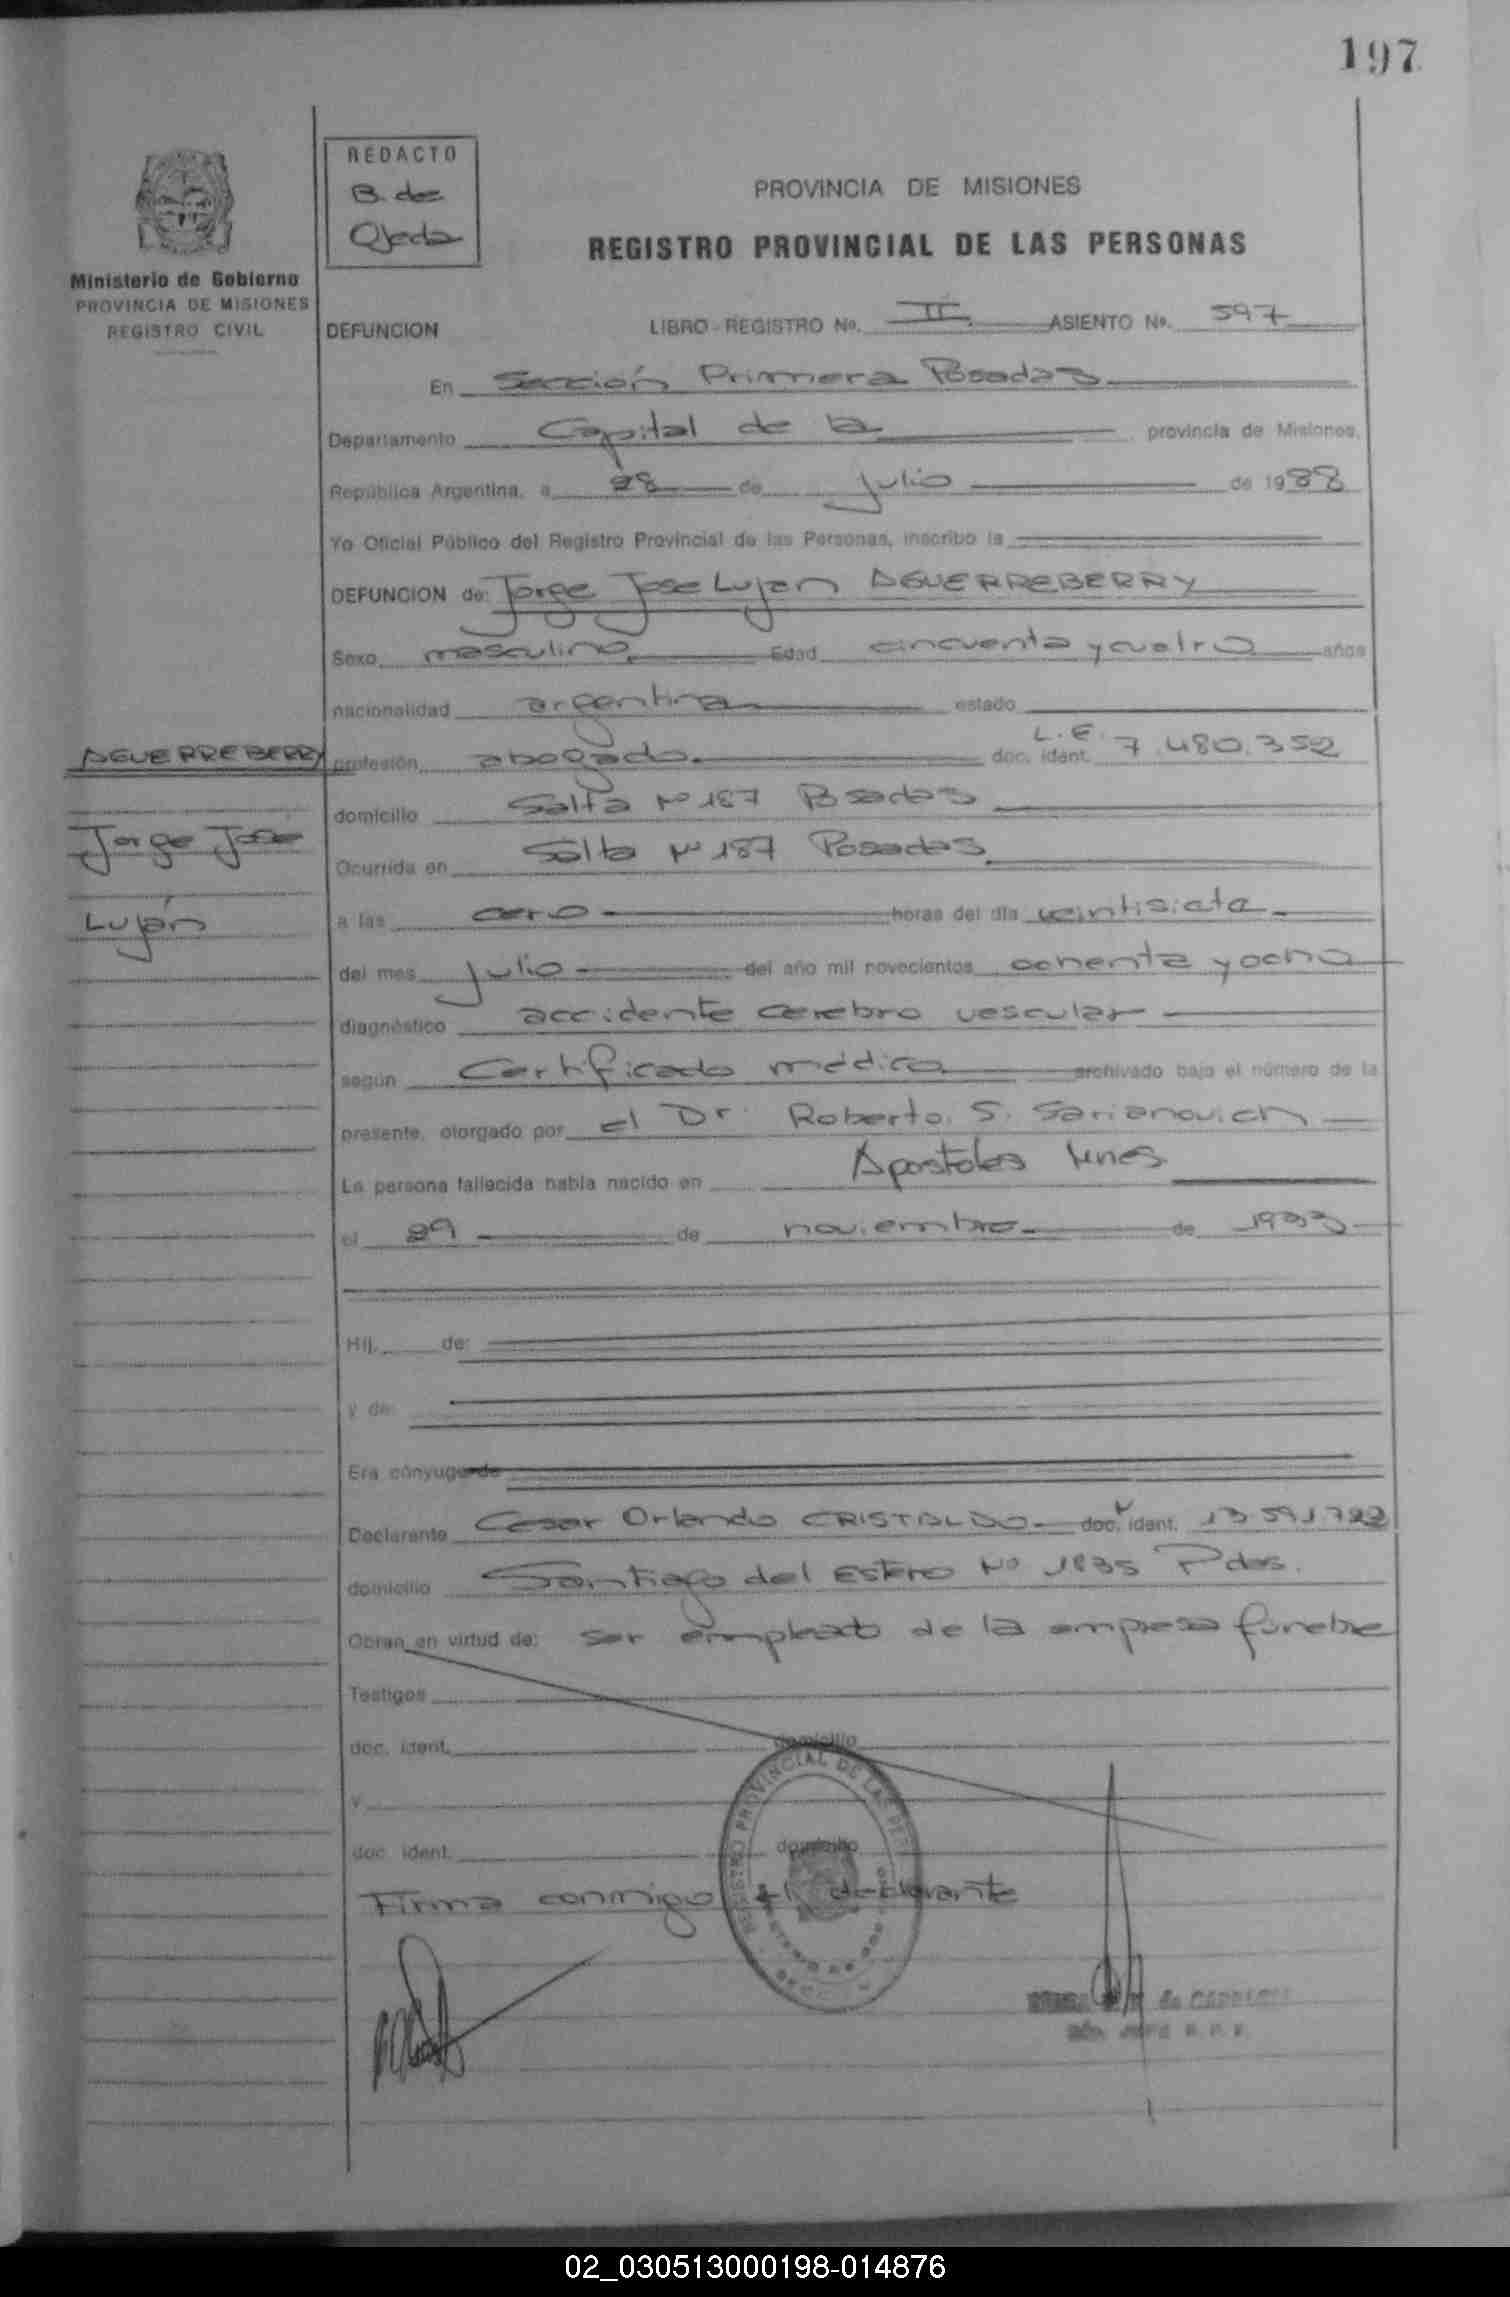 197
REDACTO
B. de
Ojeda
PROVINCIA DE MISIONES
REGISTRO PROVINCIAL DE LAS PERSONAS
Ministerio de Gobierno
PROVINCIA DE MISIONES
REGISTRO CIVIL
DEFUNCION LIBRO-REGISTRO No. II ASIENTO No. 597
En Sección Primera Posadas
Departamento Capital de la provincia de Misiones,
República Argentina, a 28 de julio de 1988
Yo Oficial Público del Registro Provincial de las Personas, inscribo la
DEFUNCION de: Jorge Jose Lujan AGUERREBERRY
Sexo masculino Edad cincuenta y cuatro años
nacionalidad argentina estado
AGUERREBERRY
Jorge José
Luján
profesión abogado doc. ident. L.E. 7.480.352
domicilio Salta Nº 187 Posadas
Ocurrida en Salta Nº 187 Posadas
a las cero horas del día veintisiete
del mes julio del año mil novecientos ochenta y ocho
diagnóstico accidente cerebro vascular
según Certificado médico archivado bajo el número de la
presente, otorgado por el Dr. Roberto. S. Sarianovich
La persona fallecida había nacido en Apostoles Mnes
el 29 de noviembre de 1933
Hij. de:
y de:
Era cónyuge de
Declarante Cesar Orlando CRISTALDO doc. ident. 13 591 722
domicilio Santiago del Estero Nº 1835 Pdas.
Obran en virtud de: ser empleado de la empresa fúnebre
Testigos
doc. ident. domicilio
y
doc. ident. domicilio
Firma conmigo el declarante
REGISTRO PROVINCIAL DE LAS PER
02_030513000198-014876